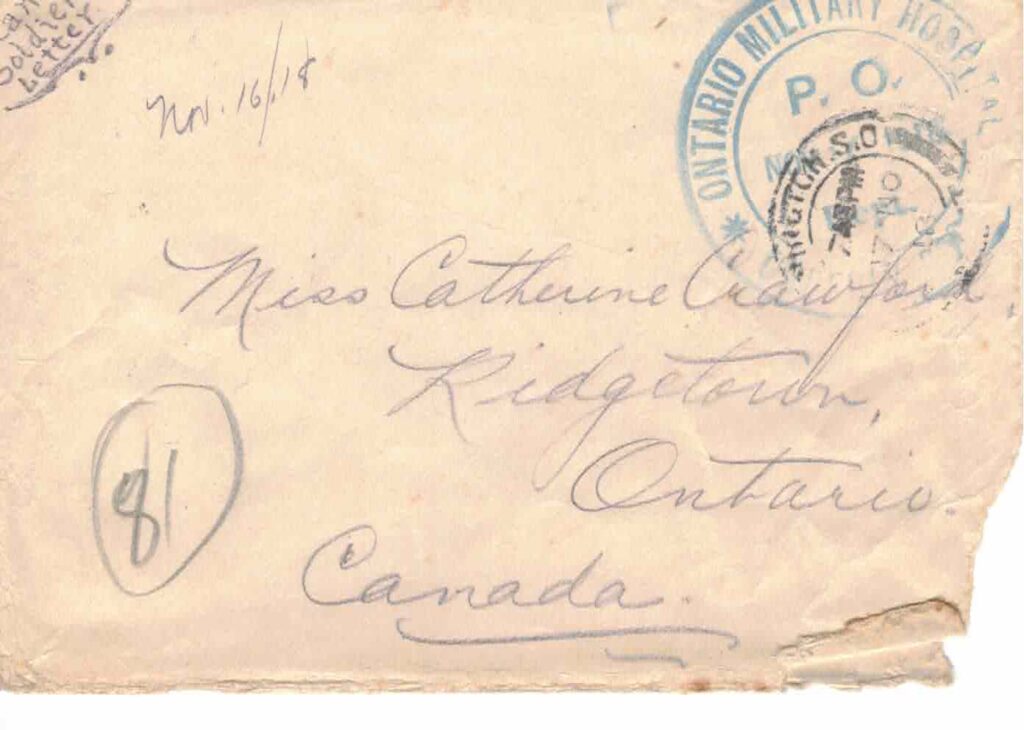 Can
Soldier
Letter
Nov. 16/18
ONTARIO MILITARY HOSPITAL
P. O.
S.O
PM
Miss Catherine Crawford,
Ridgetown,
Ontario.
81
Canada.